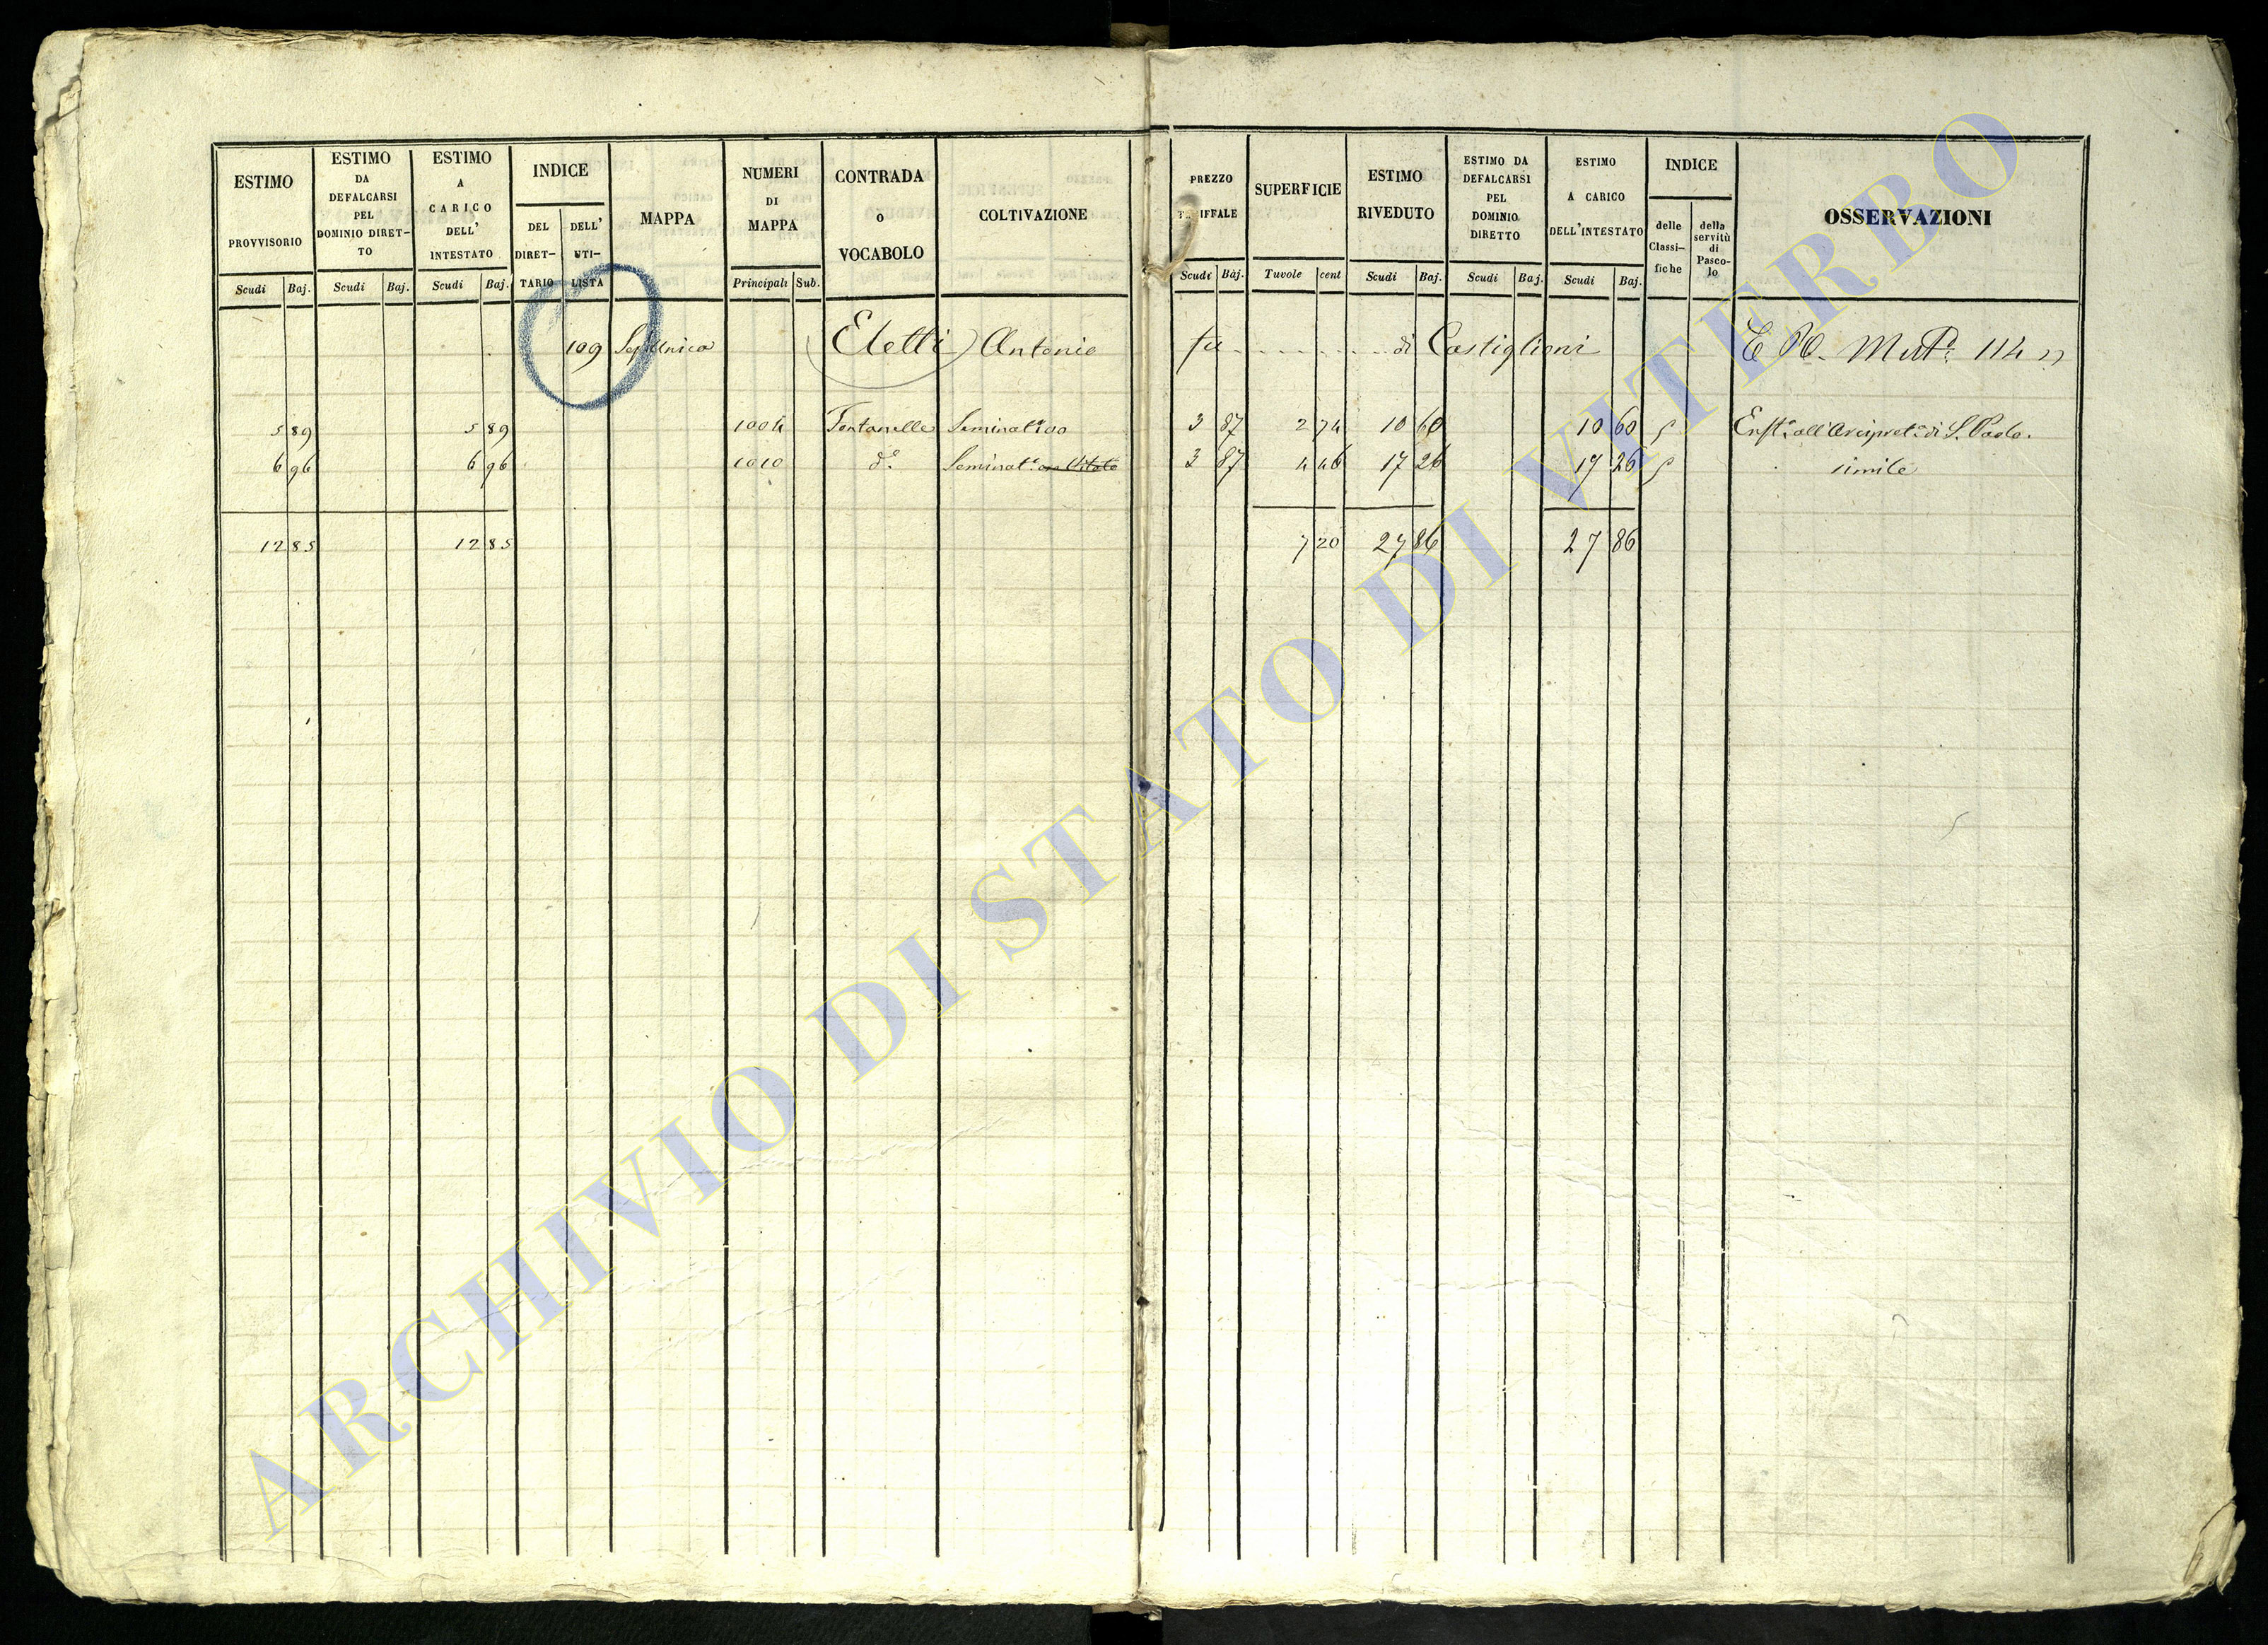 ESTIMO PROVVISORIO Scudi Baj.
ESTIMO DA DEFALCARSI PEL DOMINIO DIRET-TO Scudi Baj.
ESTIMO A CARICO DELL' INTESTATO Scudi Baj.
INDICE DEL DIRET-TARIO DELL' UTI-LISTA
MAPPA
NUMERI DI MAPPA Principali Sub.
CONTRADA o VOCABOLO
COLTIVAZIONE
PREZZO TARIFFALE Scudi Baj.
SUPERFICIE Tavole cent
ESTIMO RIVEDUTO Scudi Baj.
ESTIMO DA DEFALCARSI PEL DOMINIO DIRETTO Scudi Baj.
ESTIMO A CARICO DELL'INTESTATO Scudi Baj.
INDICE delle Classi-fiche della servitù di Pasco-lo
OSSERVAZIONI
109 Eletti Antonio fu di Castiglioni 114
5 89 5 89 1004 Fontanelle Seminativo 3 87 2 74 10 60 10 60 Enft.a all'Arcipret.a di S. Paolo.
6 96 6 96 1010 d.o Seminat.o 3 87 4 46 17 26 17 26 simile
12 85 12 85 7 20 27 86 27 86
ARCHIVIO DI STATO DI VITERBO